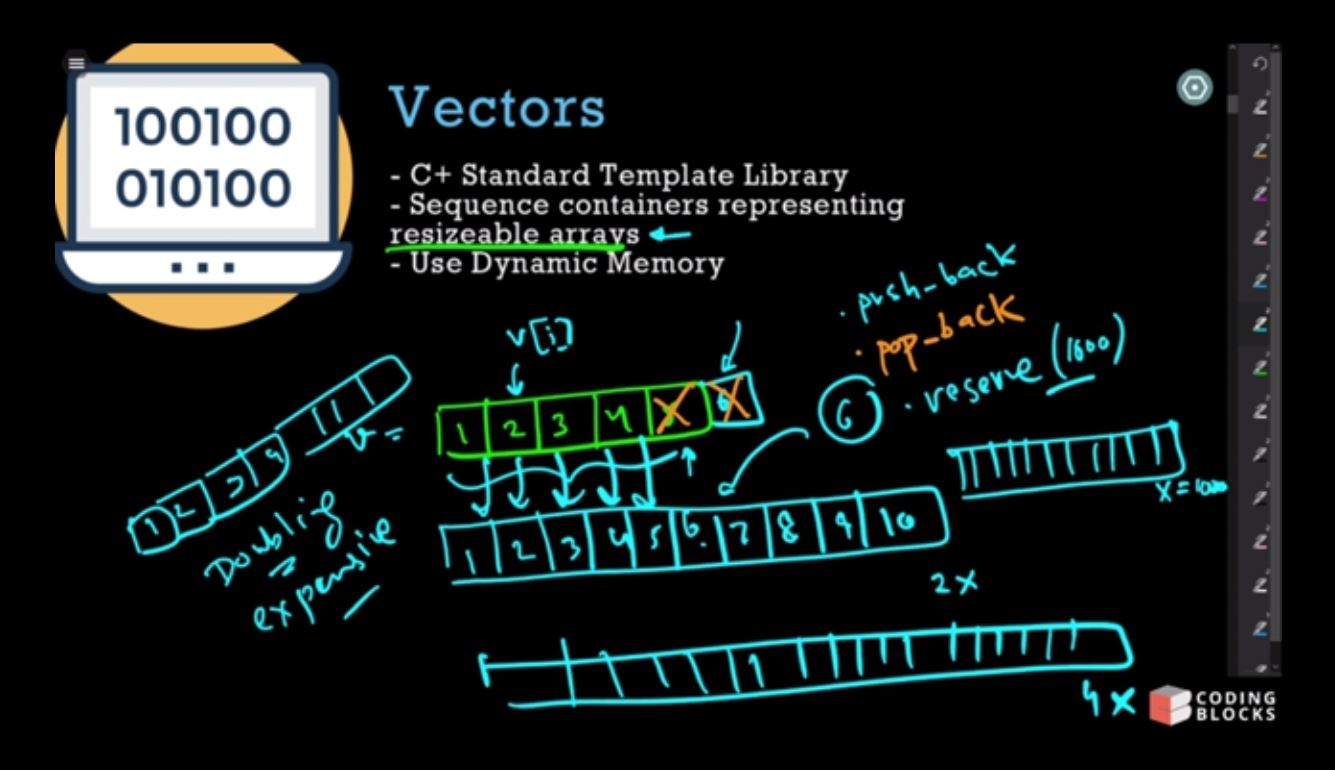 100100
010100
Vectors
- C+ Standard Template Library
- Sequence containers representing
resizeable arrays
- Use Dynamic Memory
. push_back
. pop_back
. reserve (1000)
6
v[i]
1 2 3 4
v =
1 2 3 4
Doubling
expensive
1 2 3 4 5 6. 7 8 9 10
x = 1000
2x
4x
CODING
BLOCKS